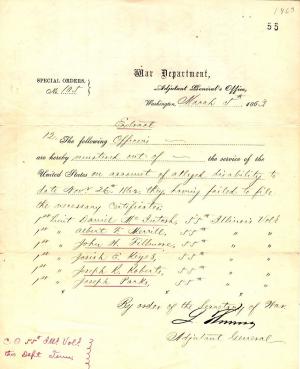 1863
55
War Department,
SPECIAL ORDERS,
No. 105
Adjutant General's Office,
Washington, March 5th 1863
Extract
12. The following Officers
are hereby mustered out of the service of the
United States on account of alleged disability to
date Nov 26th 1862, they having failed to file
the necessary certificates.
1st Lieut Daniel McIntosh, 55th Illinois Vols
1st " Albert F. Merrill, 55th " "
1st " John W. Fillmore, 55th " "
1st " Josiah E. Keyes, 55th " "
1st " Joseph R. Roberts, 55th " "
1st " Joseph Parks, 55th " "
By order of the Secretary of War.
L Thomas
Adjutant General
C.O 55th Ill Vols
this Dept